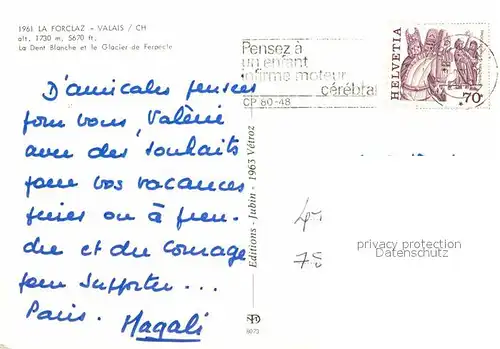 1961 LA FORCLAZ - VALAIS / CH
alt. 1730 m, 5670 ft.
La Dent Blanche et le Glacier de Ferpècle
Pensez à
un enfant
infirme moteur
cérébral
CP 80-48
HELVETIA
70
D'amicales pensées
pour vous, Valérie
avec des souhaits
pour vos vacances
finies ou à pren-
dre et du courage
pour supporter...
Paris. Magali
Editions - Jubin - 1963 Vétroz
6073
78
privacy protection
Datenschutz